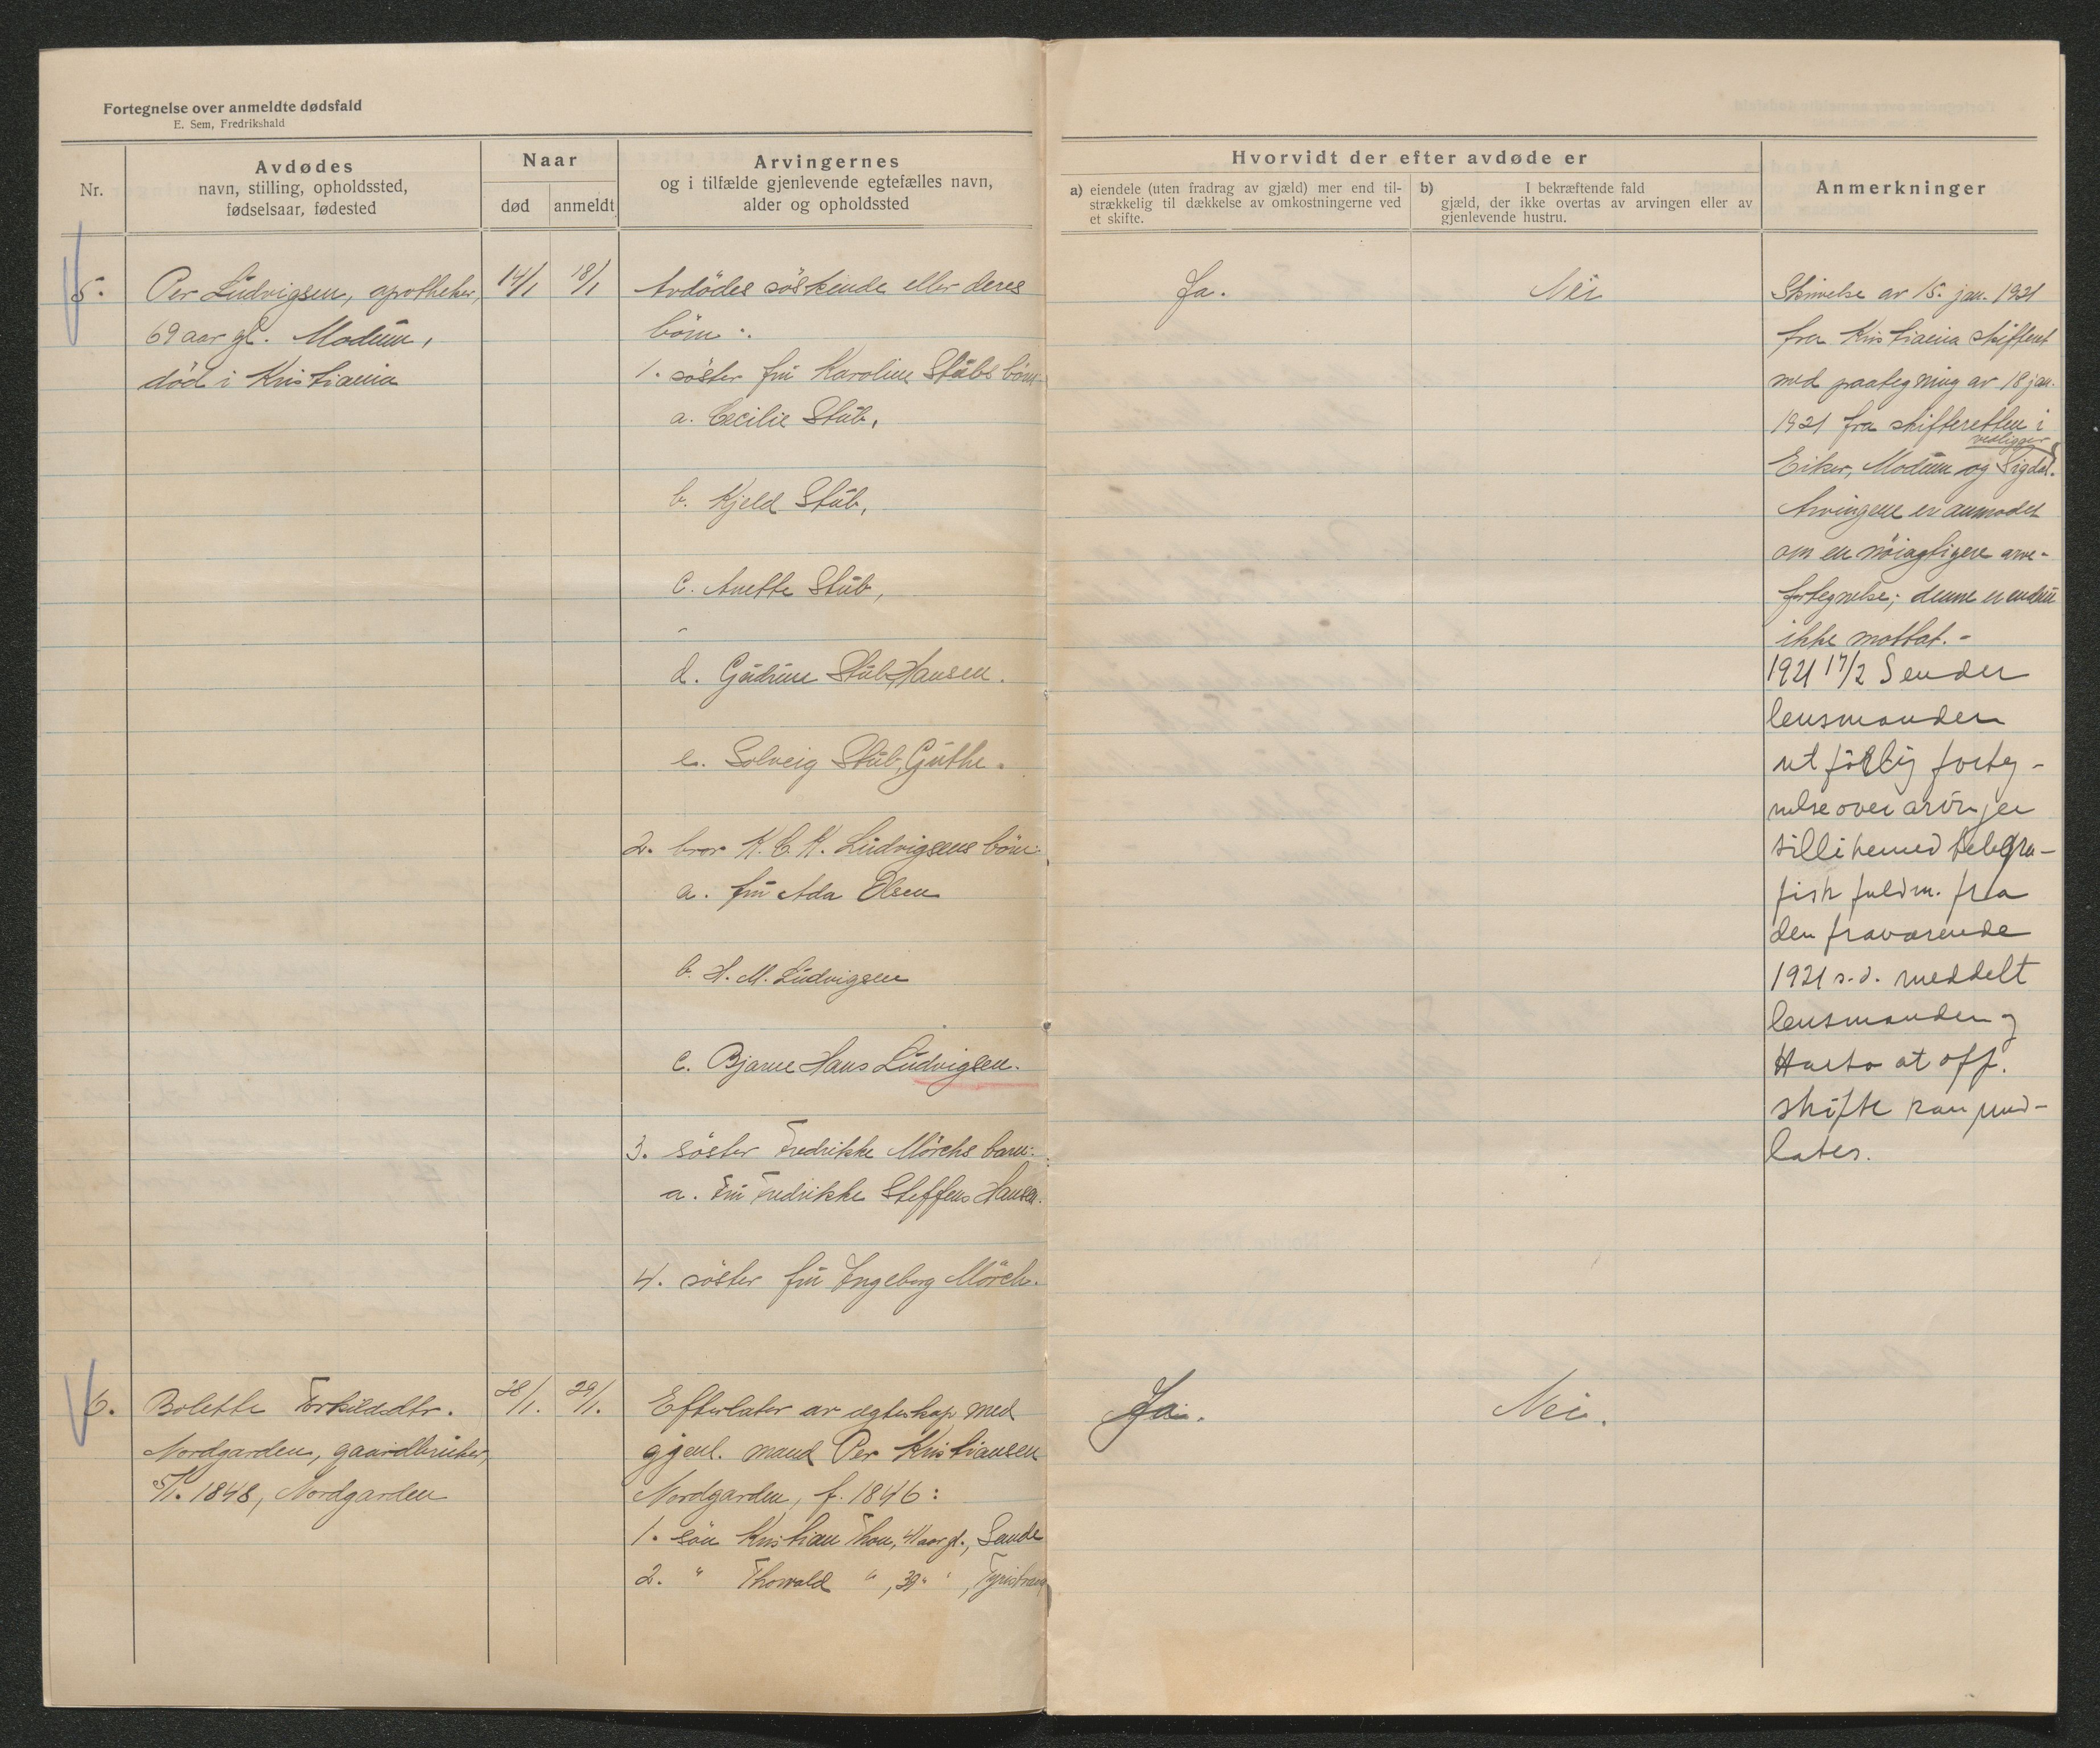 Fortegnelse over anmeldte dødsfald
E. Sem, Fredrikshald
Nr.
Avdødes
navn, stilling, opholdssted,
fødselsaar, fødested
Naar
død
anmeldt
Arvingernes
og i tilfælde gjenlevende egtefælles navn,
alder og opholdssted
Hvorvidt der efter avdøde er
a) eiendele (uten fradrag av gjæld) mer end til-
strækkelig til dækkelse av omkostningerne ved
et skifte.
b) I bekræftende fald
gjæld, der ikke overtas av arvingen eller av
gjenlevende hustru.
Anmerkninger
5.
Per Ludvigsen, apotheker,
69 aar gl. Modum,
død i Kristiania
14/1
18/1
Avdödes söskende eller deres
börn:
1. söster fru Karoline Stubs börn:
a. Cecilie Stub,
b. Kjeld Stub,
c. Anette Stub,
d. Gudrun Stub Hansen.
e. Solveig Stub Guthe.
2. bror K. C. K. Ludvigsens börn:
a. fru Ada Olsen
b. H. M. Ludvigsen
c. Bjarne Hans Ludvigsen.
3. söster Fredrikke Mörchs barn:
a. Fru Fredrikke Steffens Hansen.
4. söster fru Ingeborg Mörch.
Ja.
Nei
Skrivelse av 15. jan. 1921
fra Kristiania skifteret
med paategning av 18 jan.
1921 fra skifteretten i
vedligger
Eiker, Modum og Sigdal.
Arvingene er anmodet
om en nöiagtigere arve-
fortegnelse; denne er endnu
ikke mottat. -
1921 17/2 Sender
lensmanden
utförlig forteg-
nelse over arvinger
tillikemed telegra-
fisk fuldm. fra
den fraværende
1921 s.d. meddelt
lensmanden og
at off.
skifte kan und-
lates.
6.
Bolette Torkildsdtr.
Nordgarden, gaardbruker,
5/1. 1848, Nordgarden
28/1.
29/1.
Efterlater av egteskap med
gjenl. mand Per Kristiansen
Nordgarden, f. 1846:
1. sön Kristian Thon, 41 aar gl., Sande
2. " Thorvald " , 39 " " , Tyristrand
Ja.
Nei.